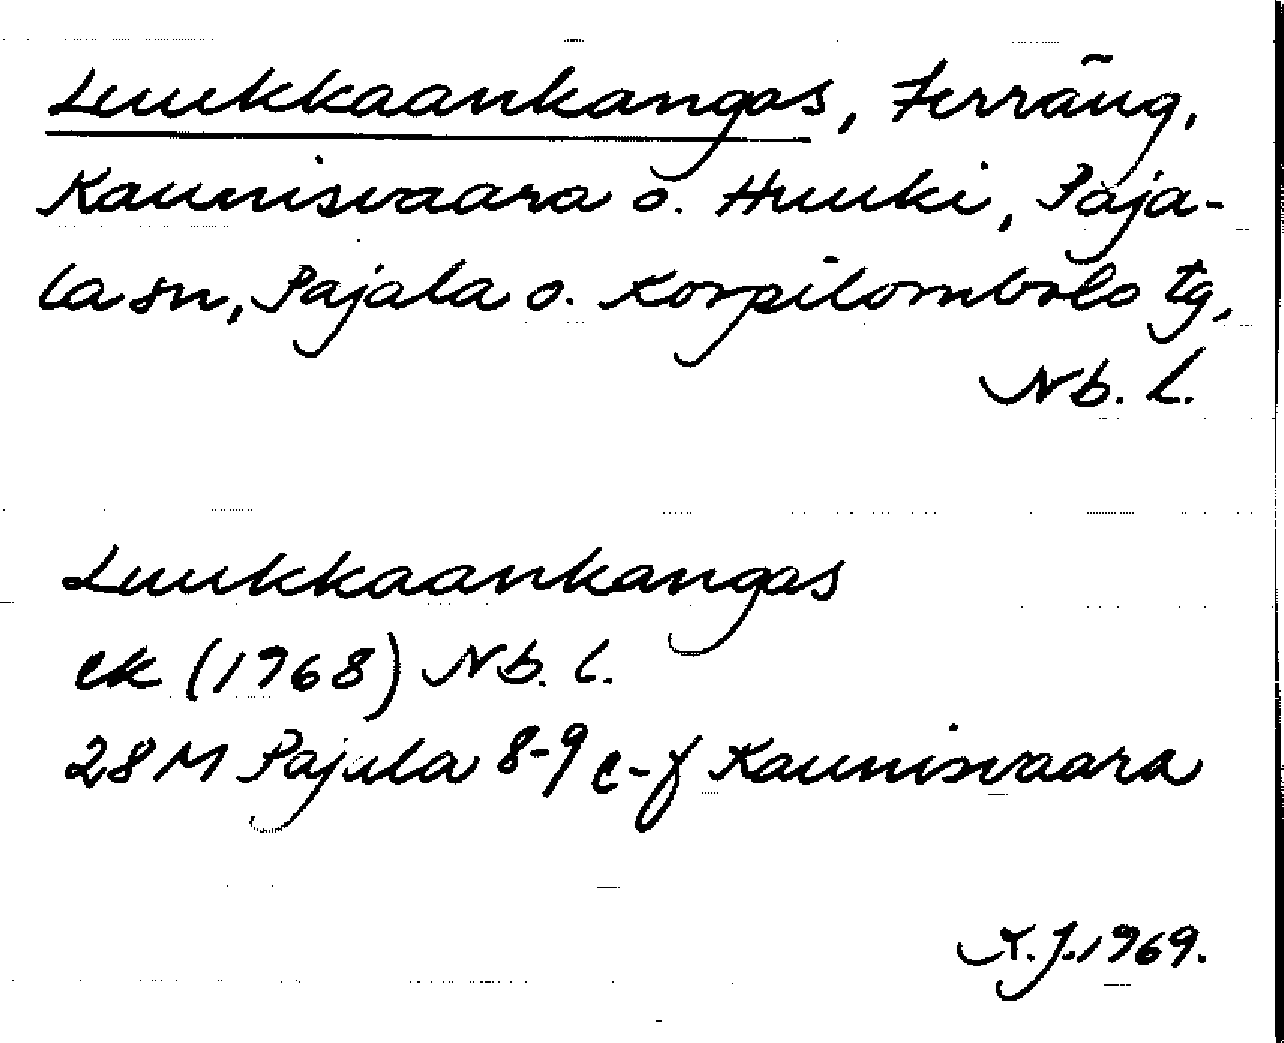 Luukkaankangas, Terräng,
Kaunisvaara o. Huuki, Paja-
la sn, Pajala o. Korpilombolo tg,
Nb. l.
Luukkaankangas
ek (1968) Nb. l.
28 M Pajala 8-9 e-f Kaunisvaara
K. J. 1969.